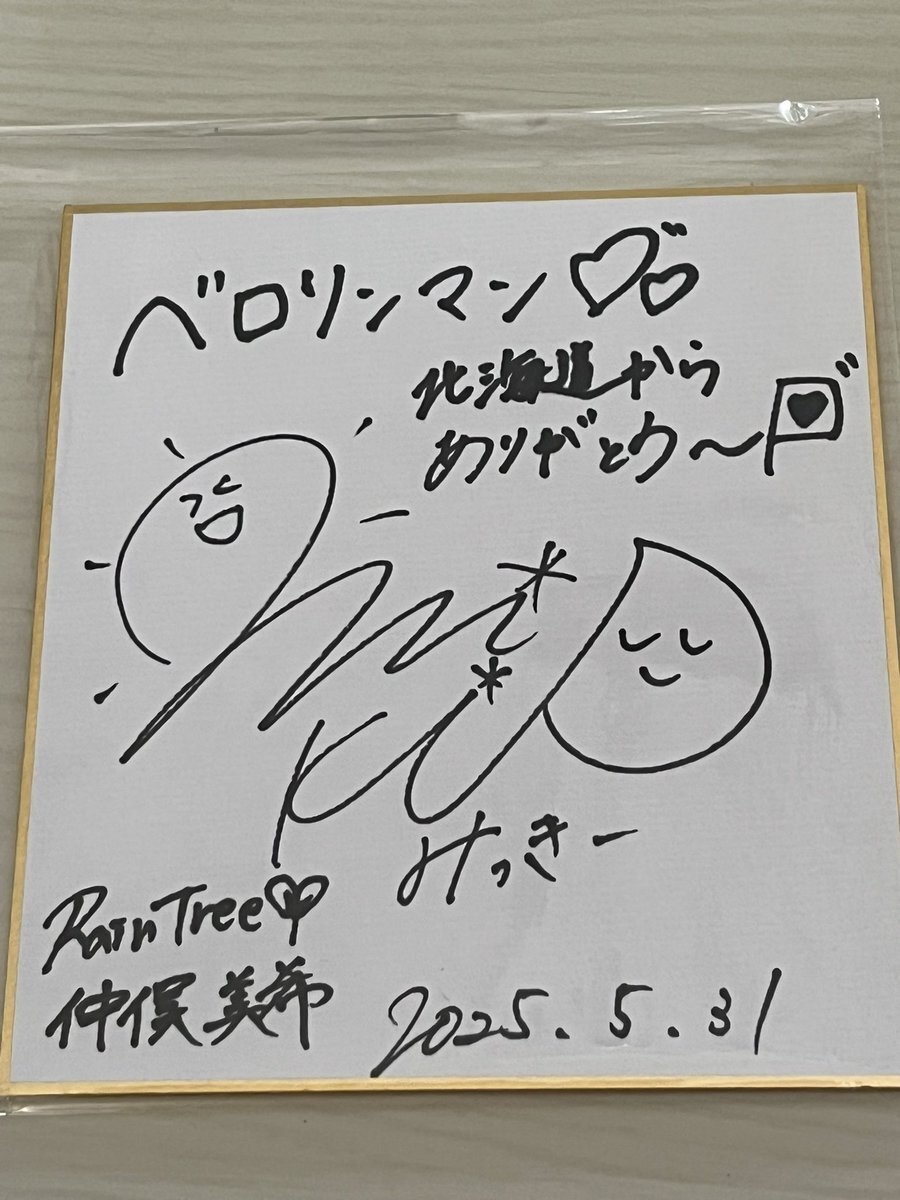 ベロリンマン♡♡
北海道から
ありがとう〜
mi
ki
みっきー
RainTree
仲俣美希
2025.5.31